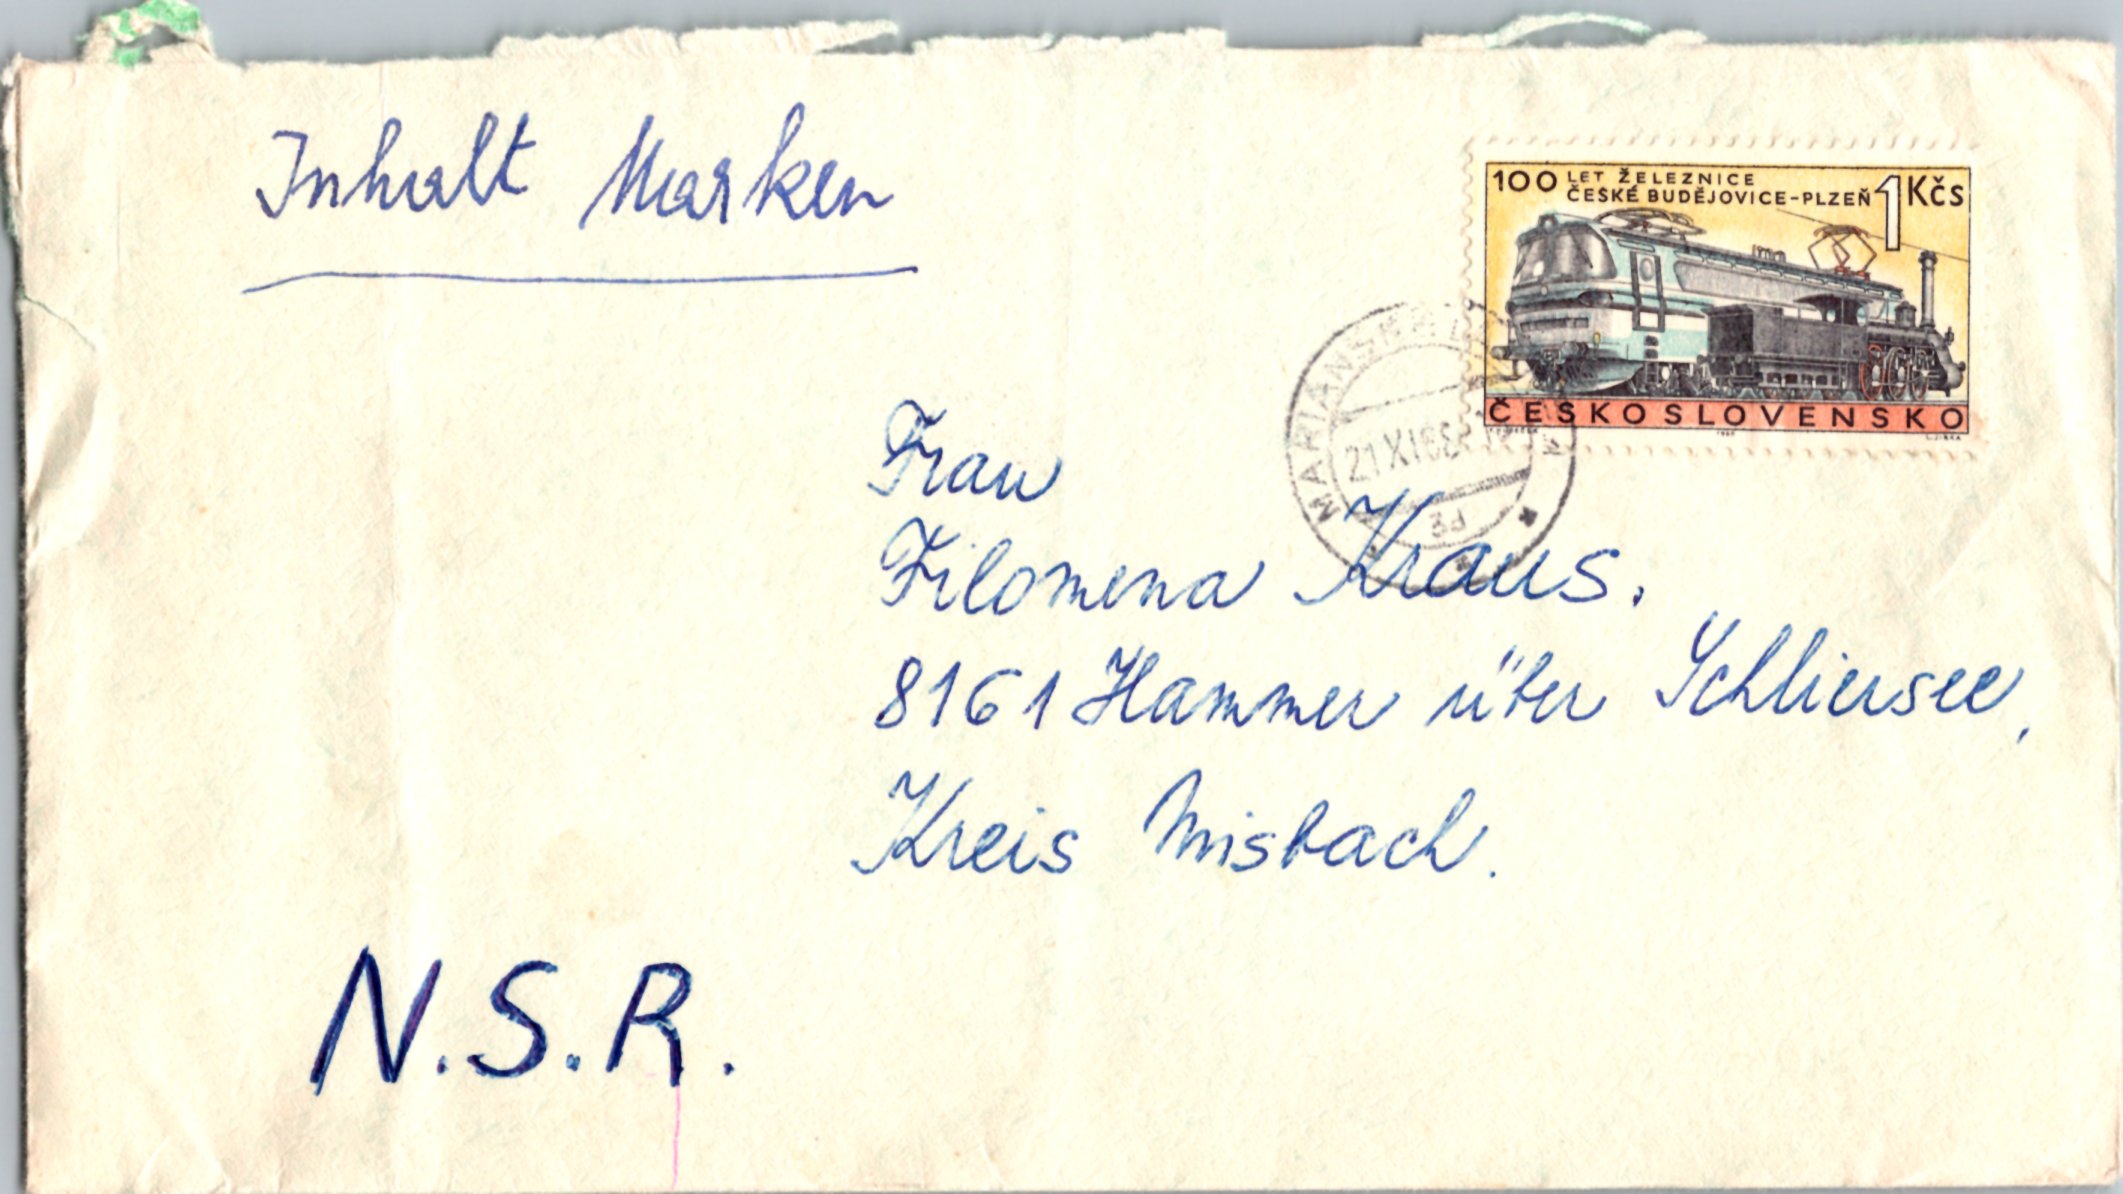 Inhalt Marken
100 LET ŽELEZNICE
ČESKÉ BUDĚJOVICE-PLZEŇ
1 Kčs
ČESKOSLOVENSKO
MARIÁNSKÉ
21 XI 68
Frau
Filomena Kraus.
8161 Hammer über Schliersee,
Kreis Misbach.
N.S.R.